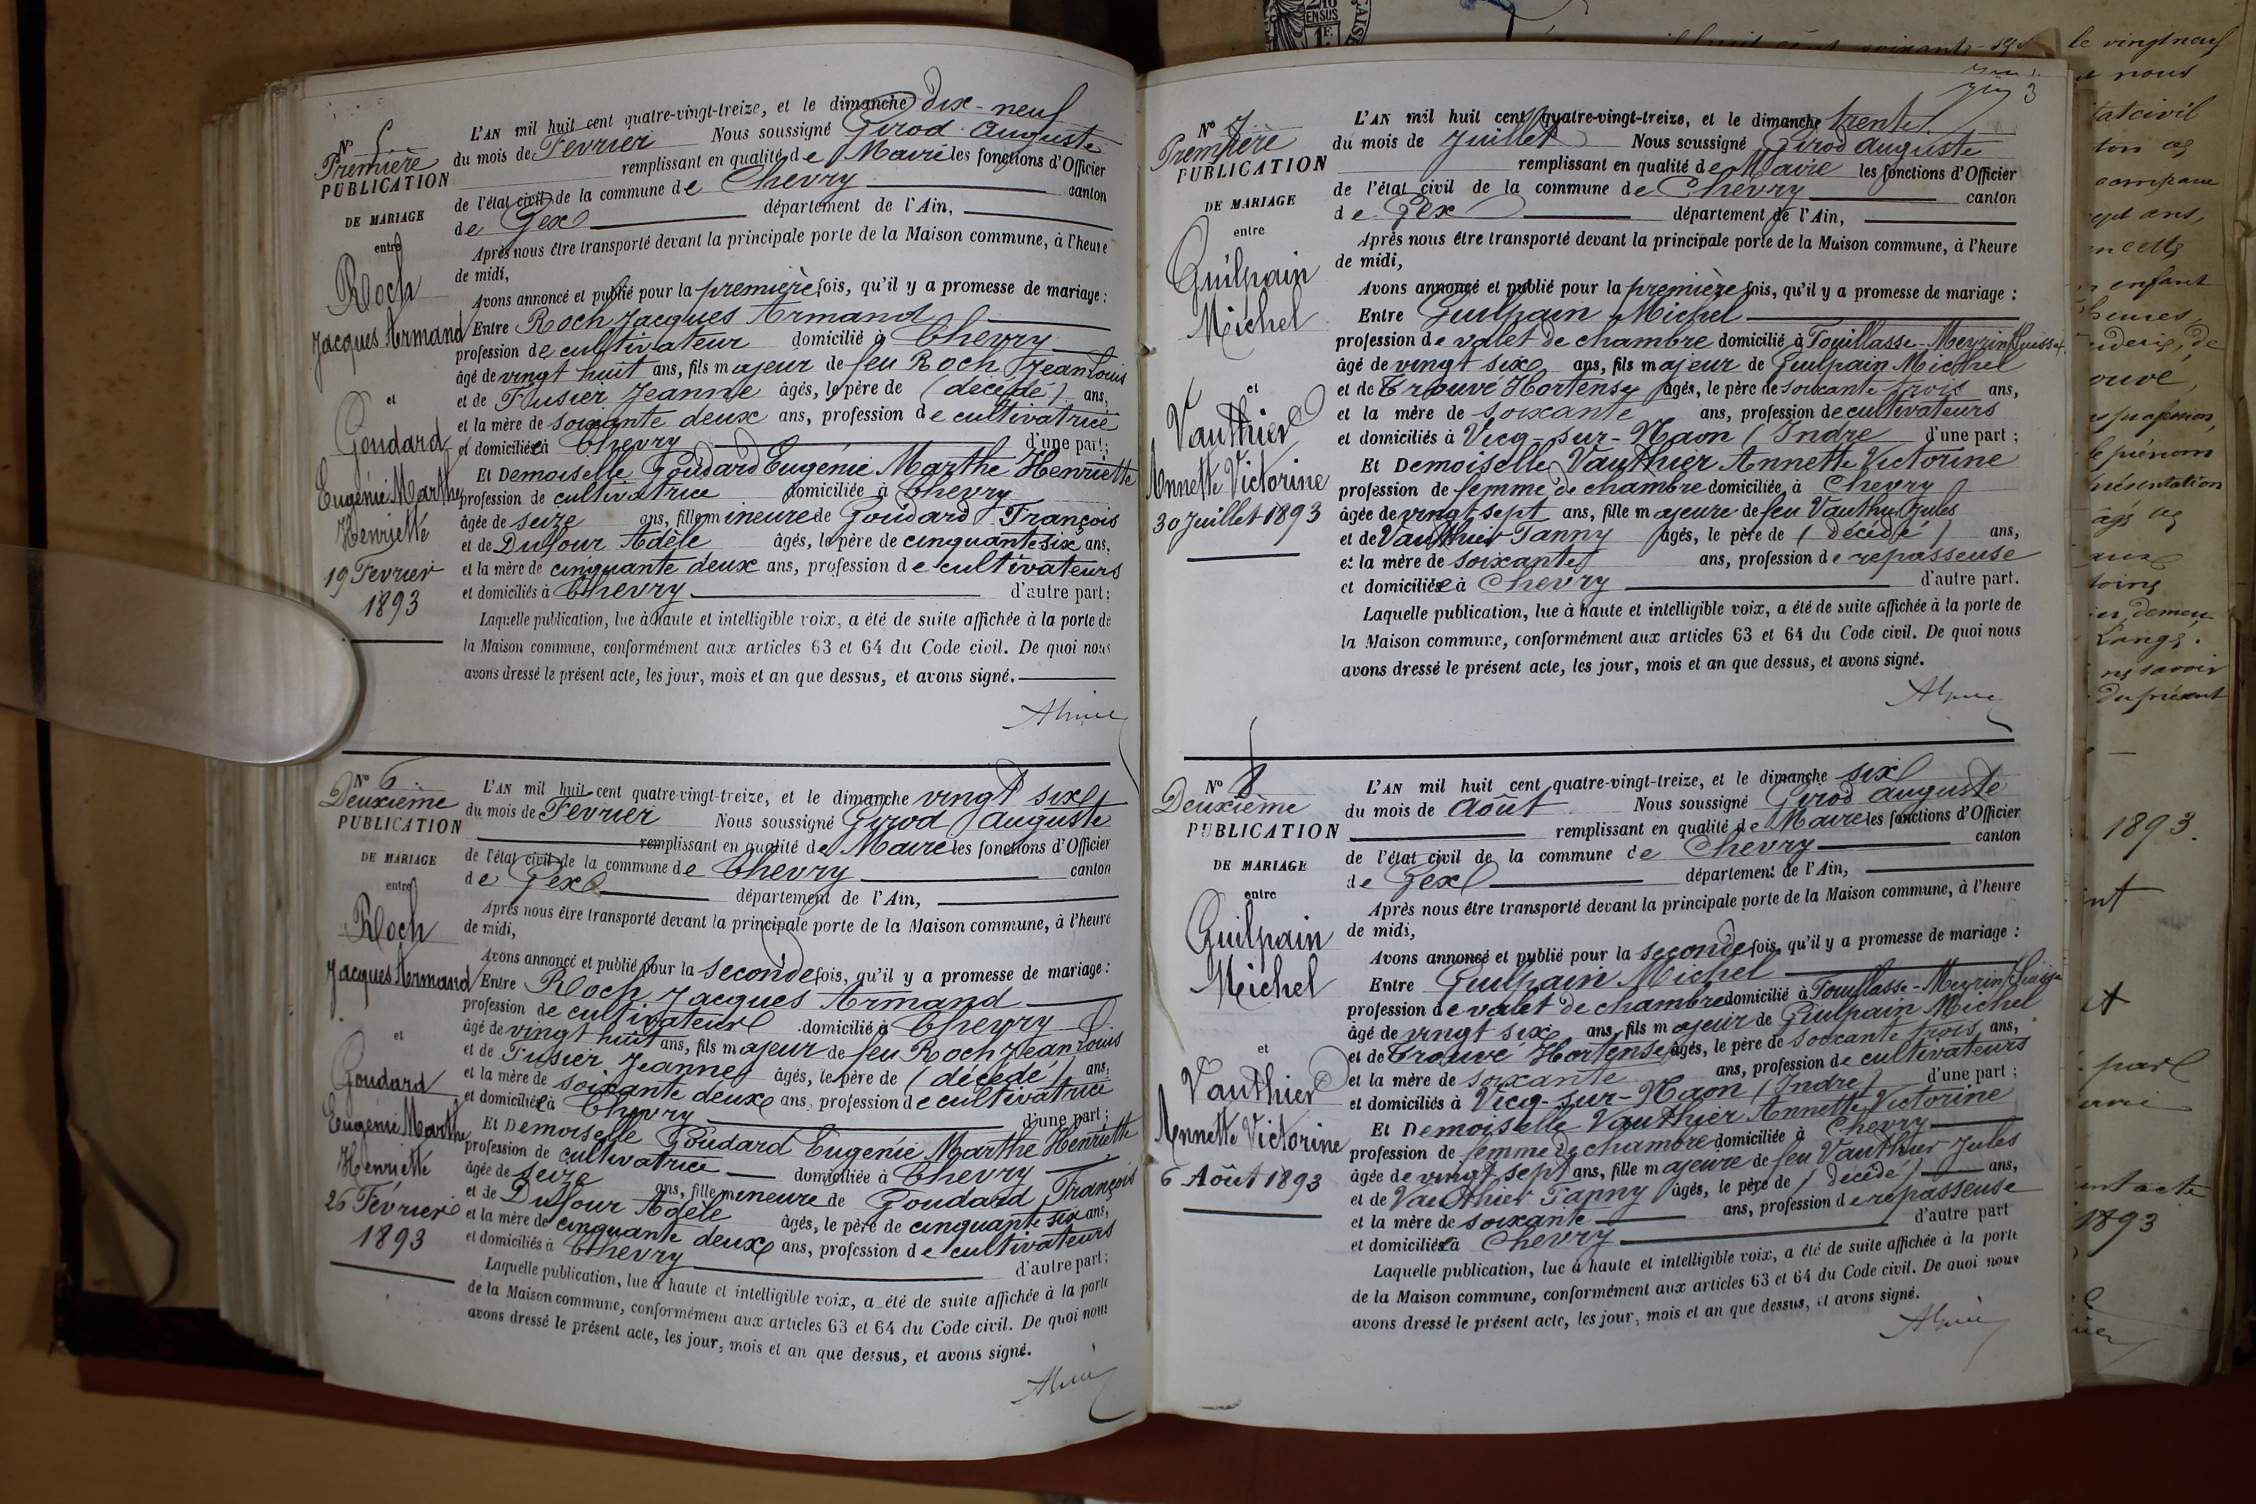 N° 5
Première
PUBLICATION
DE MARIAGE
entre
Roch
Jacques Armand
et
Goudard
Eugénie Marthe
Henriette
19 Fevrier
1893
L'AN mil huit cent quatre-vingt-treize, et le dimanche dix-neuf
du mois de Fevrier Nous soussigné Girod Auguste
remplissant en qualité de Maire les fonctions d'Officier
de l'état civil de la commune de Chevry canton
de Gex département de l'Ain,
Après nous être transporté devant la principale porte de la Maison commune, à l'heure
de midi,
Avons annoncé et publié pour la première fois, qu'il y a promesse de mariage :
Entre Roch Jacques Armand
profession de cultivateur domicilié à Chevry
âgé de vingt huit ans, fils majeur de feu Roch Jean Louis
et de Fusier Jeanne âgés, le père de (décédé) ans,
et la mère de soixante deux ans, profession de cultivatrice
et domiciliée à Chevry d'une part ;
Et Demoiselle Goudard Eugénie Marthe Henriette
profession de cultivatrice domiciliée à Chevry
âgée de seize ans, fille mineure de Goudard François
et de Dufour Adèle âgés, le père de cinquante six ans,
et la mère de cinquante deux ans, profession de cultivateurs
et domiciliés à Chevry d'autre part ;
Laquelle publication, lue à haute et intelligible voix, a été de suite affichée à la porte de
la Maison commune, conformément aux articles 63 et 64 du Code civil. De quoi nous
avons dressé le présent acte, les jour, mois et an que dessus, et avons signé.
N° 6
Deuxième
PUBLICATION
DE MARIAGE
entre
Roch
Jacques Armand
et
Goudard
Eugénie Marthe
Henriette
26 Février
1893
L'AN mil huit cent quatre-vingt-treize, et le dimanche vingt six
du mois de Fevrier Nous soussigné Girod Auguste
remplissant en qualité de Maire les fonctions d'Officier
de l'état civil de la commune de Chevry canton
de Gex département de l'Ain,
Après nous être transporté devant la principale porte de la Maison commune, à l'heure
de midi,
Avons annoncé et publié pour la seconde fois, qu'il y a promesse de mariage :
Entre Roch Jacques Armand
profession de cultivateur domicilié à Chevry
âgé de vingt huit ans, fils majeur de feu Roch Jean Louis
et de Fusier Jeanne âgés, le père de (décédé) ans,
et la mère de soixante deux ans, profession de cultivatrice
et domiciliée à Chevry d'une part ;
Et Demoiselle Goudard Eugénie Marthe Henriette
profession de cultivatrice domiciliée à Chevry
âgée de seize ans, fille mineure de Goudard François
et de Dufour Adèle âgés, le père de cinquante six ans,
et la mère de cinquante deux ans, profession de cultivateurs
et domiciliés à Chevry d'autre part ;
Laquelle publication, lue à haute et intelligible voix, a été de suite affichée à la porte
de la Maison commune, conformément aux articles 63 et 64 du Code civil. De quoi nous
avons dressé le présent acte, les jour, mois et an que dessus, et avons signé.
3
N° 7
Première
PUBLICATION
DE MARIAGE
entre
Guilpain
Michel
et
Vauthier
Annette Victorine
30 Juillet 1893
L'AN mil huit cent quatre-vingt-treize, et le dimanche trente
du mois de Juillet Nous soussigné Girod Auguste
remplissant en qualité de Maire les fonctions d'Officier
de l'état civil de la commune de Chevry canton
de Gex département de l'Ain,
Après nous être transporté devant la principale porte de la Maison commune, à l'heure
de midi,
Avons annoncé et publié pour la première fois, qu'il y a promesse de mariage :
Entre Guilpain Michel
profession de valet de chambre domicilié à Fouillasse-Meyrin (Suisse)
âgé de vingt six ans, fils majeur de Guilpain Michel
et de Trouvé Hortense âgés, le père de soixante trois ans,
et la mère de soixante ans, profession de cultivateurs
et domiciliés à Vicq-sur-Naon (Indre d'une part ;
Et Demoiselle Vauthier Annette Victorine
profession de femme de chambre domiciliée à Chevry
âgée de vingt sept ans, fille majeure de feu Vauthier Jules
et de Vauthier Fanny âgés, le père de (décédé) ans,
et la mère de soixante ans, profession de repasseuse
et domiciliée à Chevry d'autre part.
Laquelle publication, lue à haute et intelligible voix, a été de suite affichée à la porte de
la Maison commune, conformément aux articles 63 et 64 du Code civil. De quoi nous
avons dressé le présent acte, les jour, mois et an que dessus, et avons signé.
N° 8
Deuxième
PUBLICATION
DE MARIAGE
entre
Guilpain
Michel
et
Vauthier
Annette Victorine
6 Août 1893
L'AN mil huit cent quatre-vingt-treize, et le dimanche six
du mois de Août Nous soussigné Girod Auguste
remplissant en qualité de Maire les fonctions d'Officier
de l'état civil de la commune de Chevry canton
de Gex département de l'Ain,
Après nous être transporté devant la principale porte de la Maison commune, à l'heure
de midi,
Avons annoncé et publié pour la seconde fois, qu'il y a promesse de mariage :
Entre Guilpain Michel
profession de valet de chambre domicilié à Fouillasse-Meyrin (Suisse
âgé de vingt six ans, fils majeur de Guilpain Michel
et de Trouvé Hortense âgés, le père de soixante trois ans,
et la mère de soixante ans, profession de cultivateurs
et domiciliés à Vicq-sur-Naon (Indre) d'une part ;
Et Demoiselle Vauthier Annette Victorine
profession de femme de chambre domiciliée à Chevry
âgée de vingt sept ans, fille majeure de feu Vauthier Jules
et de Vauthier Fanny âgés, le père de (décédé) ans,
et la mère de soixante ans, profession de repasseuse
et domiciliée à Chevry d'autre part
Laquelle publication, lue à haute et intelligible voix, a été de suite affichée à la porte
de la Maison commune, conformément aux articles 63 et 64 du Code civil. De quoi nous
avons dressé le présent acte, les jour, mois et an que dessus, et avons signé.
le vingt neuf
nous
ans,
enfant
heures
prénom
présentation
savoir
du présent
1893.
par
acte
1893